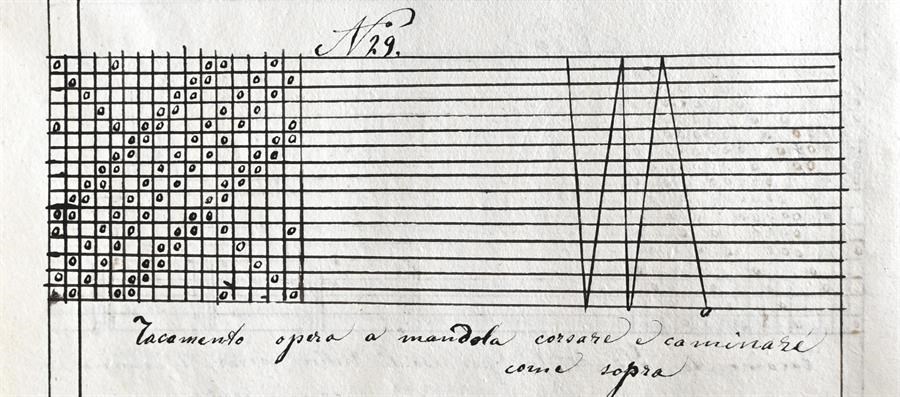 N 29.
Tacamento opera a mandola corsare e caminare
come sopra